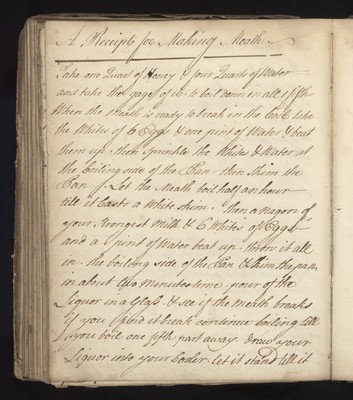 A Receipt for Making Meath
Take one Quart of Honey & four Quarts of Water
and take the gage of it to boil down in all 1 fifth
When the meath is ready to break in the Cool take
the Whites of 6 Eggs & one pint of Water & beat
them up then sprinkle the Whites & Water at
the boiling side of the Pan then skim the
Pan Let the Meath boil half an hour
till it Casts a White skim then a
your strongest Milk & 6 Whites of Eggs
and a pint of Water beat up throw it all
in the boiling side of the Pan & skim the pan
in about two minutes time pour of the
Liquor in a Glass & see if the Meath breaks
if you find it break continue boiling till
you boil one fifth part away draw your
Liquor into your Cooler let it stand till it